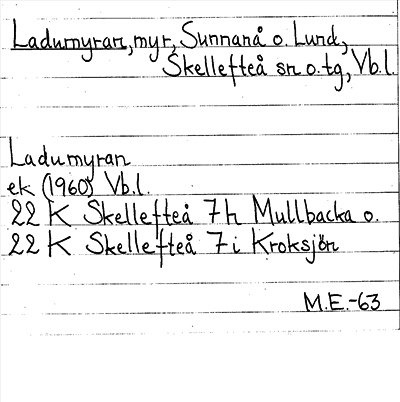 Ladumyran, myr, Sunnanå o. Lund,
Skellefteå sn o. tg, Vb.l.
Ladumyran
ek (1960) Vb.l.
22 K Skellefteå 7h Mullbacka o.
22 K Skellefteå 7i Kroksjön
M.E.-63